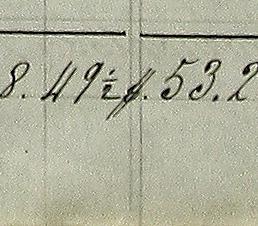 8. 49½ f. 53.2